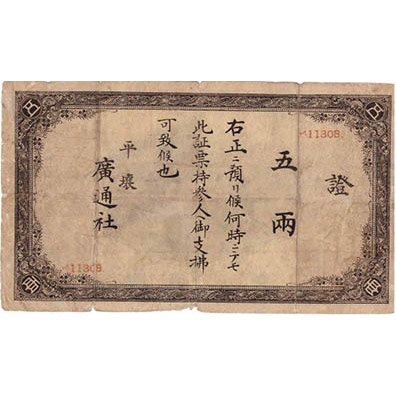 證
五兩
右正ニ預リ候何時ニテモ
此証票持參人御支拂
可致候也
平壤
廣通社
11308.
11308.
五
兩
五
兩